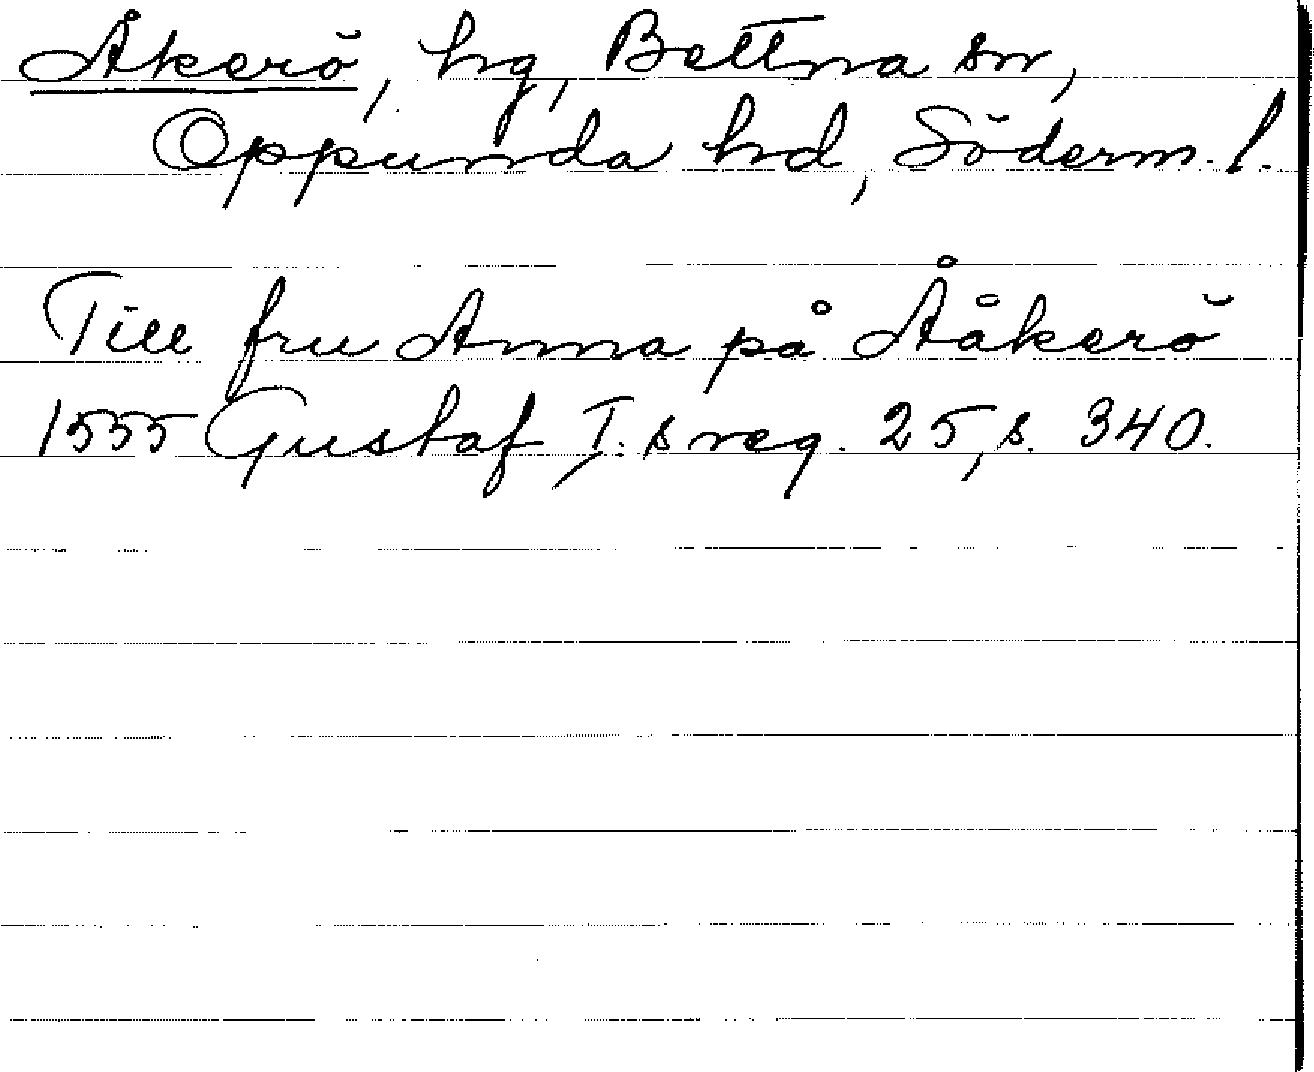 Åkerö, hg, Bettna sn,
Oppunda hd, Söderm. l.
Till fru Anna på Ååkerö
1555 Gustaf I. s reg. 25, s. 340.